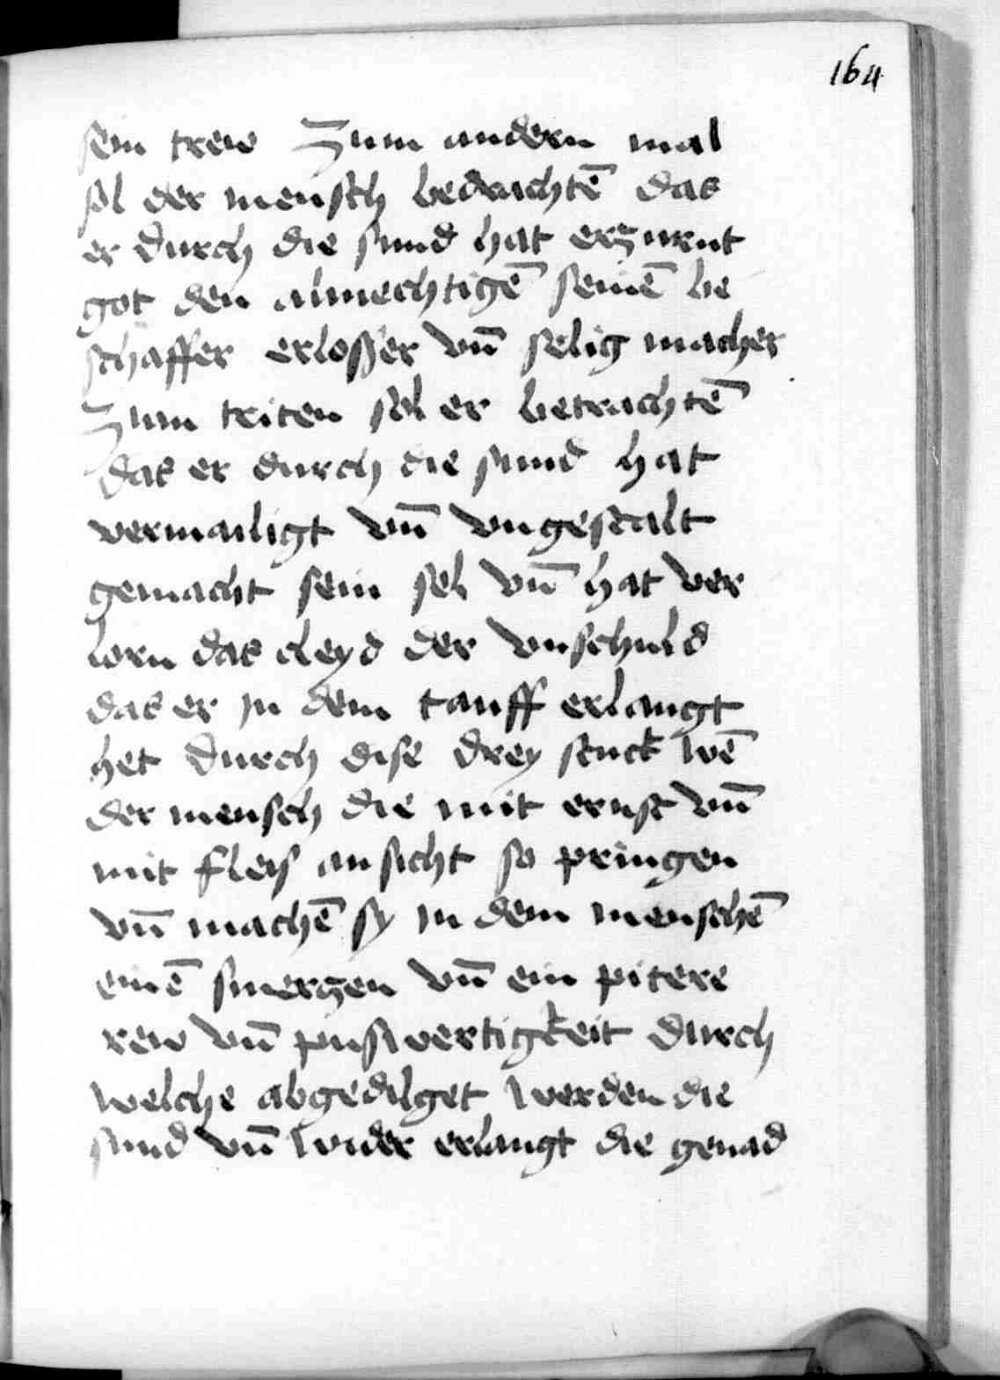 164
sein trew Zum andern mal
sol der mensch bedrachtē das
er durch die sund hat erzurnt
got den almechtigē seinē be
schaffer erlosser vn̄ selig macher
Zum triten sol er betrachtē
das er durch die sund hat
vermailigt vn̄ vngestalt
gemacht sein sel vn̄ hat ver
lorn das cleyd der vnschuld
das er jn dem tauff erlangt
het durch dise drey stuck wē
der mensch die mit ernst vn̄
mit fleis an sicht so pringen
vn̄ machē sy jn dem menschē
einē smerzen vn̄ ein pitere
rew vn̄ pusvertigkeit durch
welche abgedilget werden die
sund vn̄ wider erlangt die genad